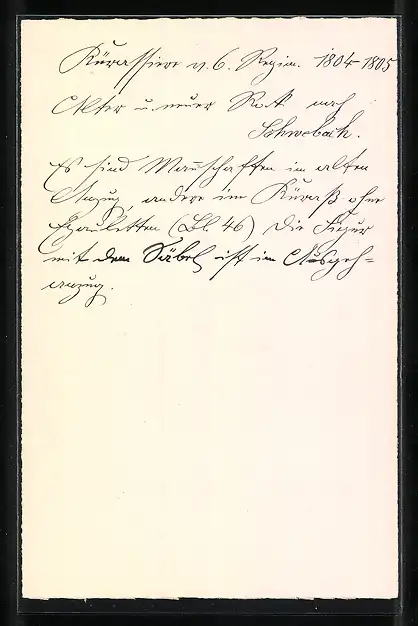 Kürassiere v. 6. Regim. 1804-1805
Alter u. neuer Rock nach
Schwebach.
Es sind Mannschaften im alten
Anzug, andere im Küraß ohne
Epauletten (Bl. 46) Die Figur
mit dem Säbel ist im Ausgeh=
anzug.